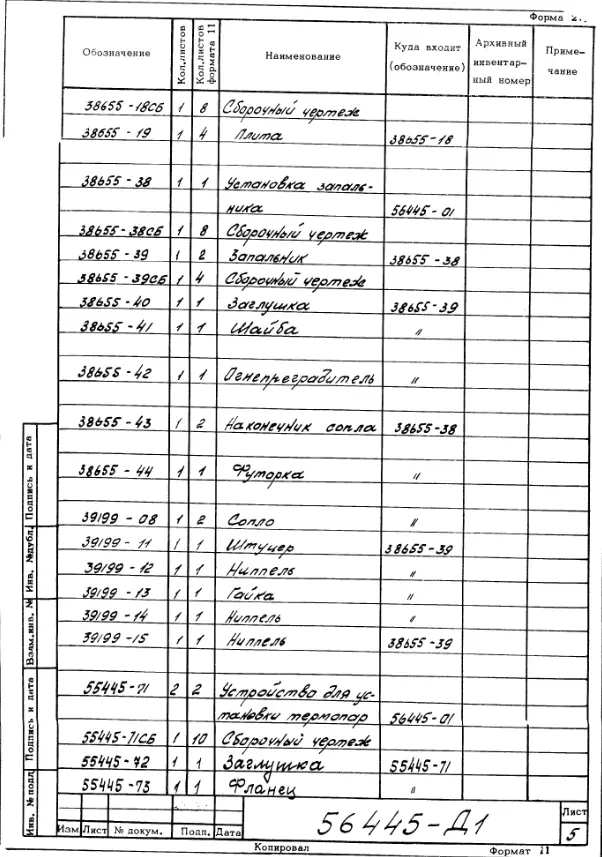 Форма 2.
Обозначение Кол.листов Кол.листов формата 11 Наименование Куда входит (обозначение) Архивный инвентарный номер Примечание
38655-18СБ 1 8 Сборочный чертеж
38655-19 1 4 Плита 38655-18
38655-38 1 1 Установка запаль-
ника 56445-01
38655-38СБ 1 8 Сборочный чертеж
38655-39 1 2 Запальник 38655-38
38655-39СБ 1 4 Сборочный чертеж
38655-40 1 1 Заглушка 38655-39
38655-41 1 1 Шайба "
38655-42 1 1 Огнепреградитель "
38655-43 1 2 Наконечник сопла 38655-38
38655-44 1 1 Футорка "
39199-08 1 2 Сопло "
39199-11 1 1 Штуцер 38655-39
39199-12 1 1 Ниппель "
39199-13 1 1 Гайка "
39199-14 1 1 Ниппель "
39199-15 1 1 Ниппель 38655-39
55445-71 2 2 Устройство для ус-
тановки термопар 56445-01
55445-71СБ 1 10 Сборочный чертеж
55445-72 1 1 Заглушка 55445-71
55445-73 1 1 Фланец "
Подпись и дата
Инв. №дубл.
Взам.инв. №
Подпись и дата
Инв. №подл
Изм Лист № докум. Подп. Дата
56445-Д1
Лист
5
Копировал Формат 11